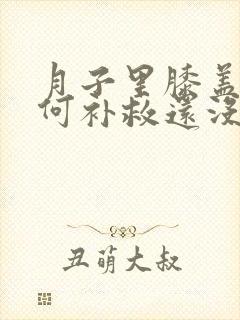 月子里膝盖
何补救还没
丑萌大叔